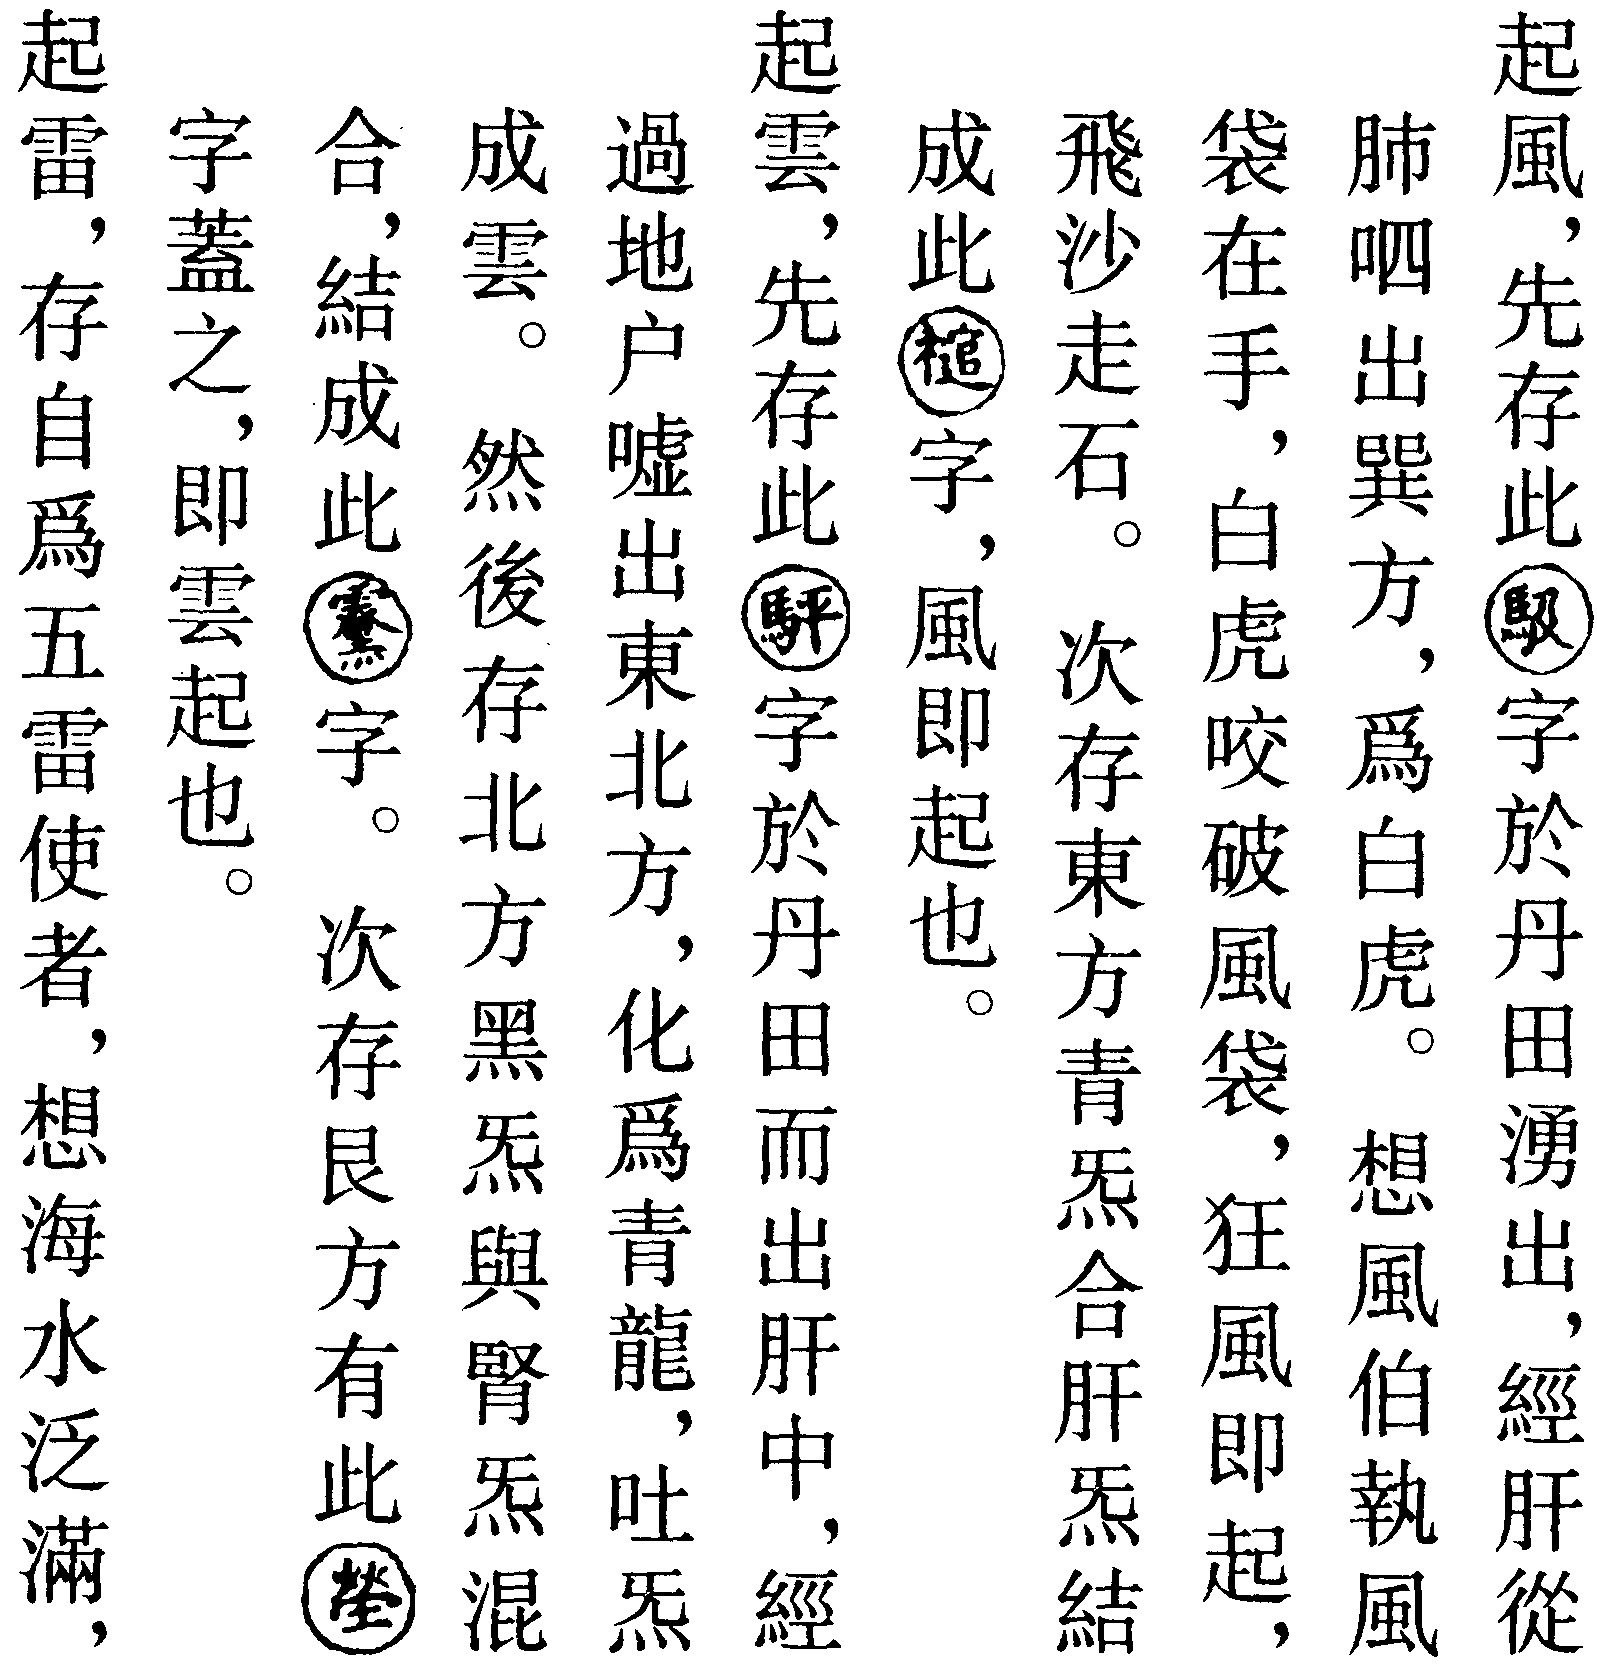 起風，先存此字於丹田湧出，經肝從
肺呬出巽方，爲白虎。想風伯執風
袋在手，白虎咬破風袋，狂風即起，
飛沙走石。次存東方青炁合肝炁結
成此字，風即起也。
起雲，先存此字於丹田而出肝中，經
過地户噓出東北方，化爲青龍，吐炁
成雲。然後存北方黑炁與腎炁混
合，結成此字。次存艮方有此
字蓋之，即雲起也。
起雷，存自爲五雷使者，想海水泛滿，